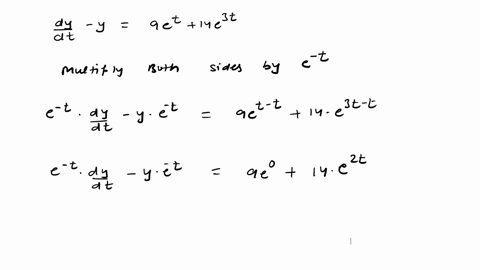 dy/dt - y = 9e^t + 14e^{3t}
Multiply Both sides by e^{-t}
e^{-t} · dy/dt - y · e^{-t} = 9e^{t-t} + 14 · e^{3t-t}
e^{-t} · dy/dt - y · e^{-t} = 9e^0 + 14 · e^{2t}